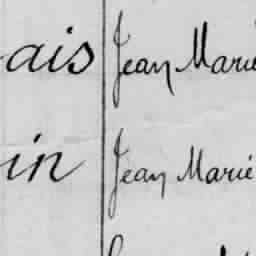 ais Jean Marie
in Jean Marie